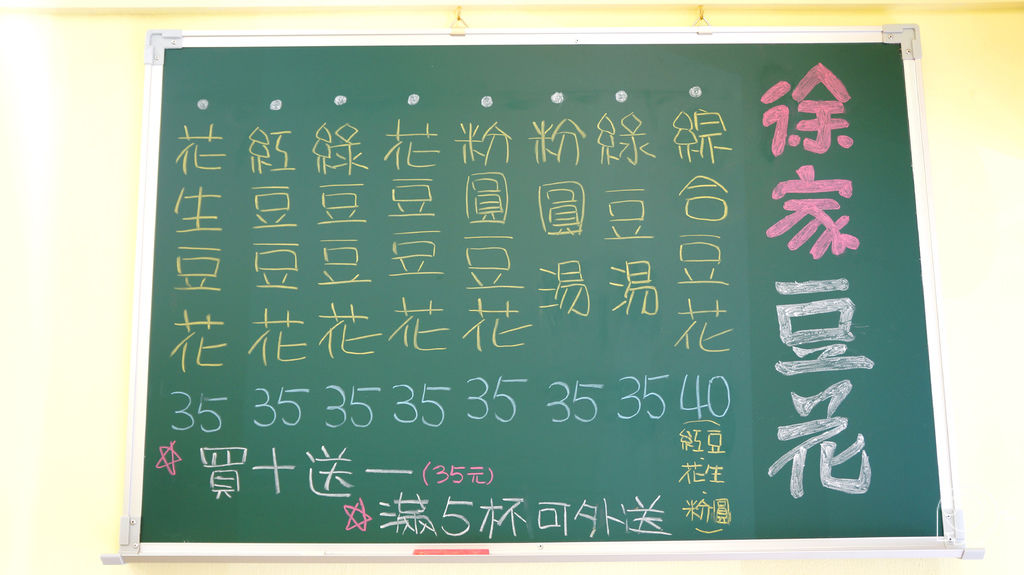 徐家豆花
綜合豆花 40
(紅豆.
花生.
粉圓)
綠豆湯 35
粉圓湯 35
粉圓豆花 35
花豆豆花 35
綠豆豆花 35
紅豆豆花 35
花生豆花 35
買十送一(35元)
滿5杯可外送